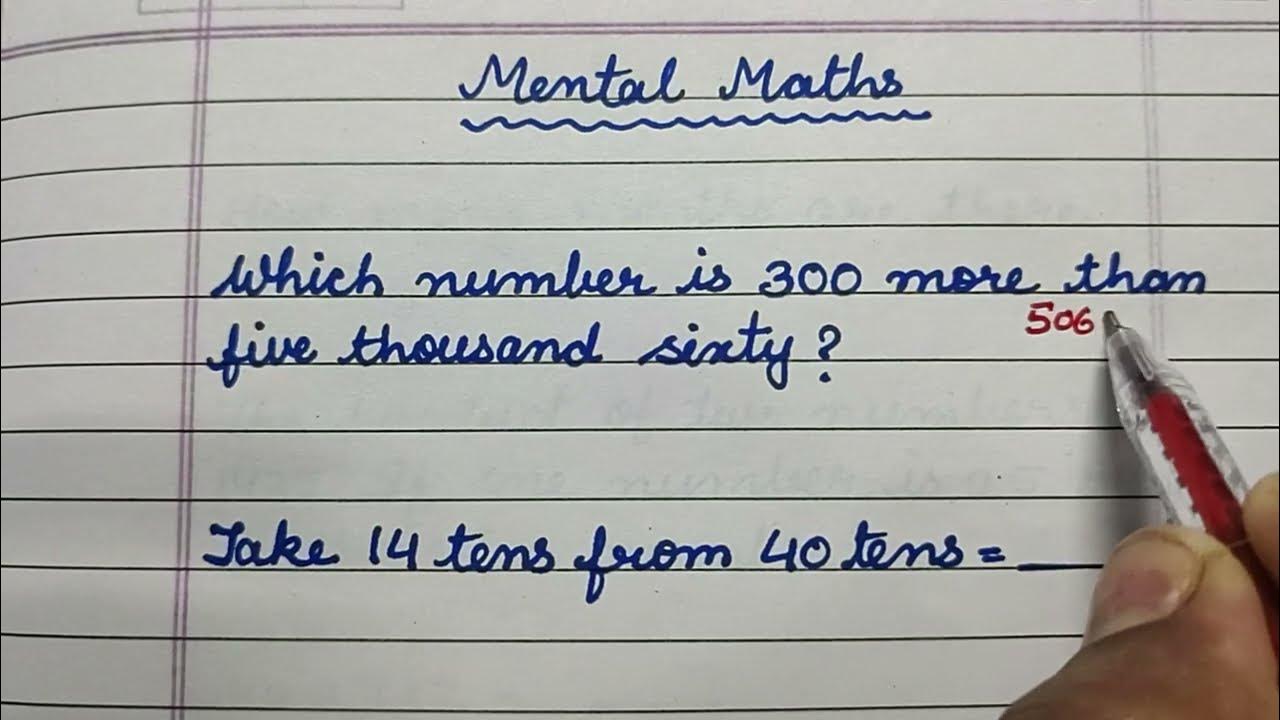 Mental Maths
Which number is 300 more than
506
five thousand sixty?
Take 14 tens from 40 tens = ___